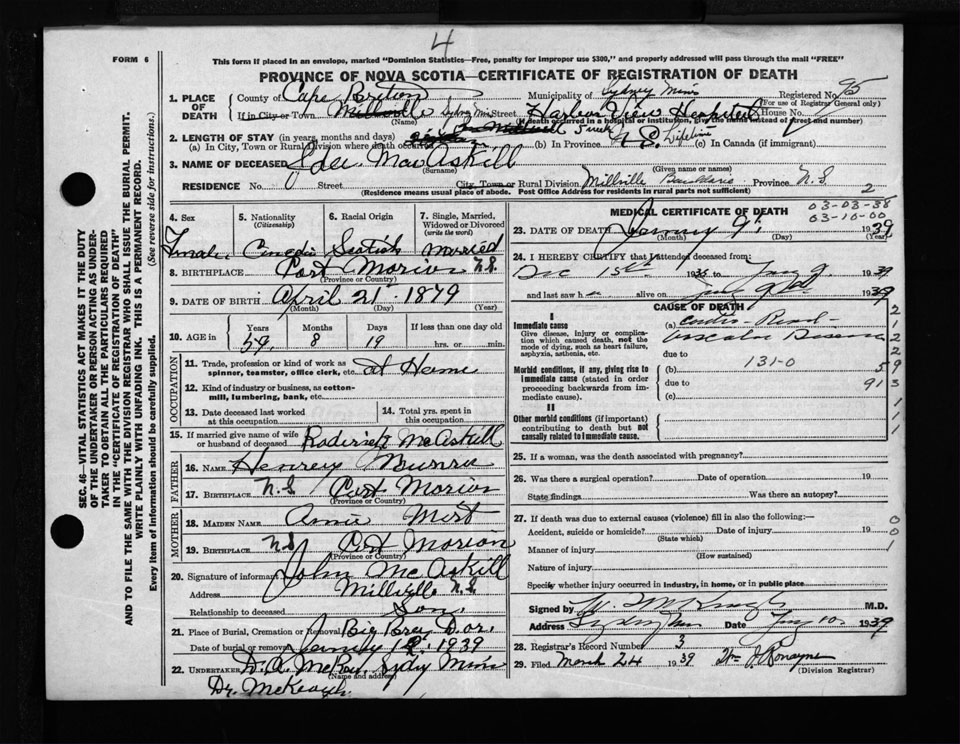 4
FORM 6
This form if placed in an envelope, marked "Dominion Statistics—Free, penalty for improper use $300," and properly addressed will pass through the mail "FREE"
PROVINCE OF NOVA SCOTIA—CERTIFICATE OF REGISTRATION OF DEATH
1. PLACE OF DEATH
County of Cape Breton Municipality of Sydney Mines Registered No. 95
(For use of Registrar General only)
If in City or Town Millville Sydney Mines Street Harbor View Hospital House No.
(Name) (If death occurred in a hospital or institution, give the name instead of street and number)
2. LENGTH OF STAY (in years, months and days)
(a) In City, Town or Rural Division where death occurred (b) In Province N.S. Lifetime (c) In Canada (if immigrant)
3. NAME OF DECEASED MacAskill
(Surname) (Given name or names)
RESIDENCE No. Street City, Town or Rural Division Millville Boularderie Province N.S. 2
(Residence means usual place of abode. Post Office Address for residents in rural parts not sufficient)
4. Sex
Female
5. Nationality
(Citizenship)
6. Racial Origin
Scotish
7. Single, Married, Widowed or Divorced
(write the word)
Married
8. BIRTHPLACE Port Morion N.S.
(Province or Country)
9. DATE OF BIRTH April 21st 1879
(Month) (Day) (Year)
10. AGE in
Years Months Days If less than one day old
59 8 19 hrs. or min.
OCCUPATION
11. Trade, profession or kind of work as spinner, teamster, office clerk, etc. at Home
12. Kind of industry or business, as cotton-mill, lumbering, bank, etc.
13. Date deceased last worked at this occupation
14. Total yrs. spent in this occupation
15. If married give name of wife or husband of deceased Roderick McAskill
FATHER
16. NAME Henrey Munro
17. BIRTHPLACE N.S. Port Morion
(Province or Country)
MOTHER
18. MAIDEN NAME Annie
19. BIRTHPLACE N.S. Port Morion
(Province or Country)
20. Signature of informant John McAskill
Address Millville N.S.
Relationship to deceased Son
21. Place of Burial, Cremation or Removal Big Bras D.or.
Date of burial or removal 12 1939
22. UNDERTAKER Sydney Mines
(Name and address)
Dr. McKeough
MEDICAL CERTIFICATE OF DEATH
03-03-38
03-10-00
23. DATE OF DEATH 9th 1939
(Month) (Day) (Year)
24. I HEREBY CERTIFY that I attended deceased from:
Dec 15th to Jany 9 1939
and last saw h alive on 1939
CAUSE OF DEATH
I
Immediate cause
Give disease, injury or complication which caused death, not the mode of dying, such as heart failure, asphyxia, asthenia, etc.
(a) Cardio Renal
Vascular Disease
due to
Morbid conditions, if any, giving rise to immediate cause (stated in order proceeding backwards from immediate cause).
(b) 131-0
due to
(c)
II
Other morbid conditions (if important) contributing to death but not causally related to immediate cause.
25. If a woman, was the death associated with pregnancy?
26. Was there a surgical operation? Date of operation 19
State findings Was there an autopsy?
27. If death was due to external causes (violence) fill in also the following:—
Accident, suicide or homicide? Date of injury 19
(State which)
Manner of injury
(How sustained)
Nature of injury
Specify whether injury occurred in industry, in home, or in public place
0
0
1
Signed by M.D.
Address Date Jany 10 1939
28. Registrar's Record Number 3
29. Filed March 24 1939
(Division Registrar)
SEC. 46—VITAL STATISTICS ACT MAKES IT THE DUTY
OF THE UNDERTAKER OR PERSON ACTING AS UNDER-
TAKER TO OBTAIN ALL THE PARTICULARS REQUIRED
IN THE "CERTIFICATE OF REGISTRATION OF DEATH"
AND TO FILE THE SAME WITH THE DIVISION REGISTRAR WHO SHALL ISSUE THE BURIAL PERMIT.
WRITE PLAINLY WITH UNFADING INK. THIS IS A PERMANENT RECORD.
Every item of information should be carefully supplied. (See reverse side for instructions.)